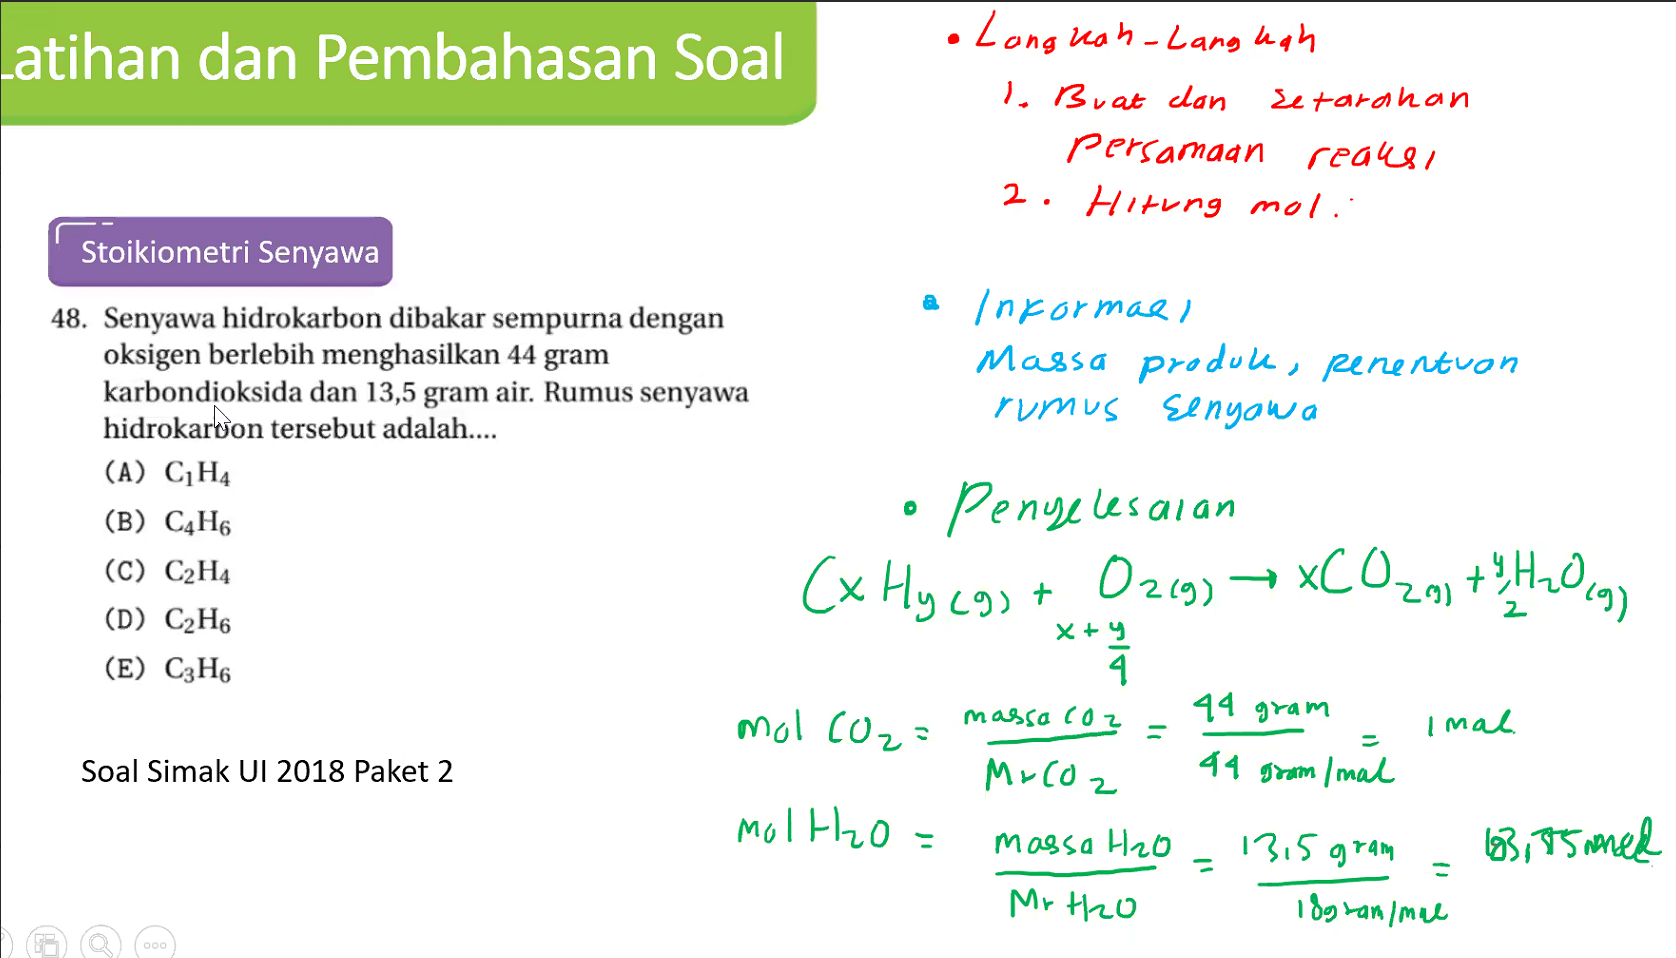 Latihan dan Pembahasan Soal
Stoikiometri Senyawa
48. Senyawa hidrokarbon dibakar sempurna dengan
oksigen berlebih menghasilkan 44 gram
karbondioksida dan 13,5 gram air. Rumus senyawa
hidrokarbon tersebut adalah....
(A) C₁H₄
(B) C₄H₆
(C) C₂H₄
(D) C₂H₆
(E) C₃H₆
Soal Simak UI 2018 Paket 2
• Langkah-Langkah
1. Buat dan setarakan
Persamaan reaksi
2. Hitung mol.
• Informasi
Massa produk, penentuan
rumus senyawa
• Penyelesaian
CxHy(g) + O₂(g) → xCO₂(g) + y/2 H₂O(g)
x + y/4
mol CO₂ = massa CO₂ / Mr CO₂ = 44 gram / 44 gram/mol = 1 mol
mol H₂O = massa H₂O / Mr H₂O = 13,5 gram / 18 gram/mol =